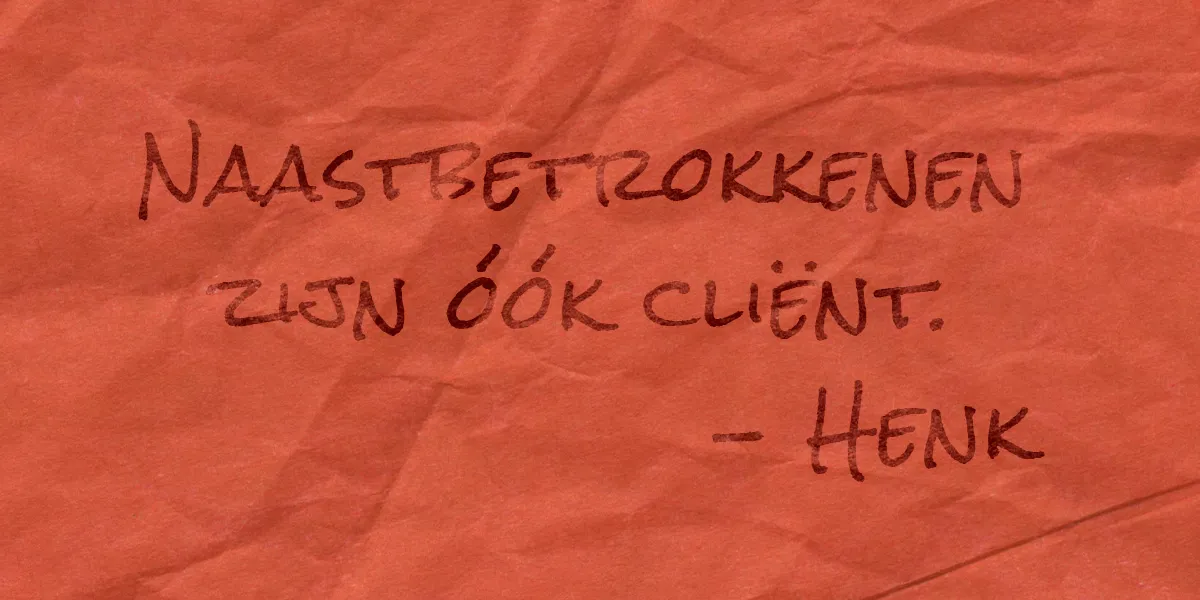 Naastbetrokkenen
zijn óók cliënt.
- Henk